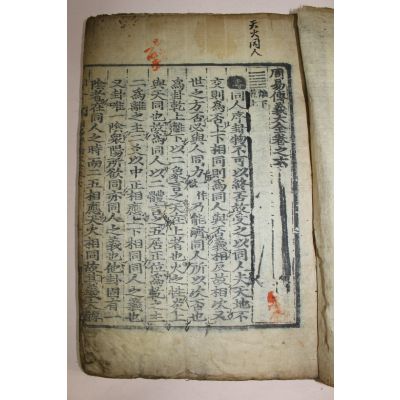 天火同人
周易傳義大全卷之六
離下
乾上
傳同人序卦物不可以終否故受之以同人夫天地不
交則為否上下相同則為同人與否義相反故相次又
世之方否必與人同力乃能濟同人所以次否也
為卦乾上離下以二象言之天在上者也火之性炎上
與天同也故為同人以二體言之五居正位為乾之主
二為離之主二爻以中正相應上下相同同人之義也
又卦唯一陰衆陽所欲同亦同人之義也他卦固有一
陰者在同人之時而二五相應天火相同故其義大